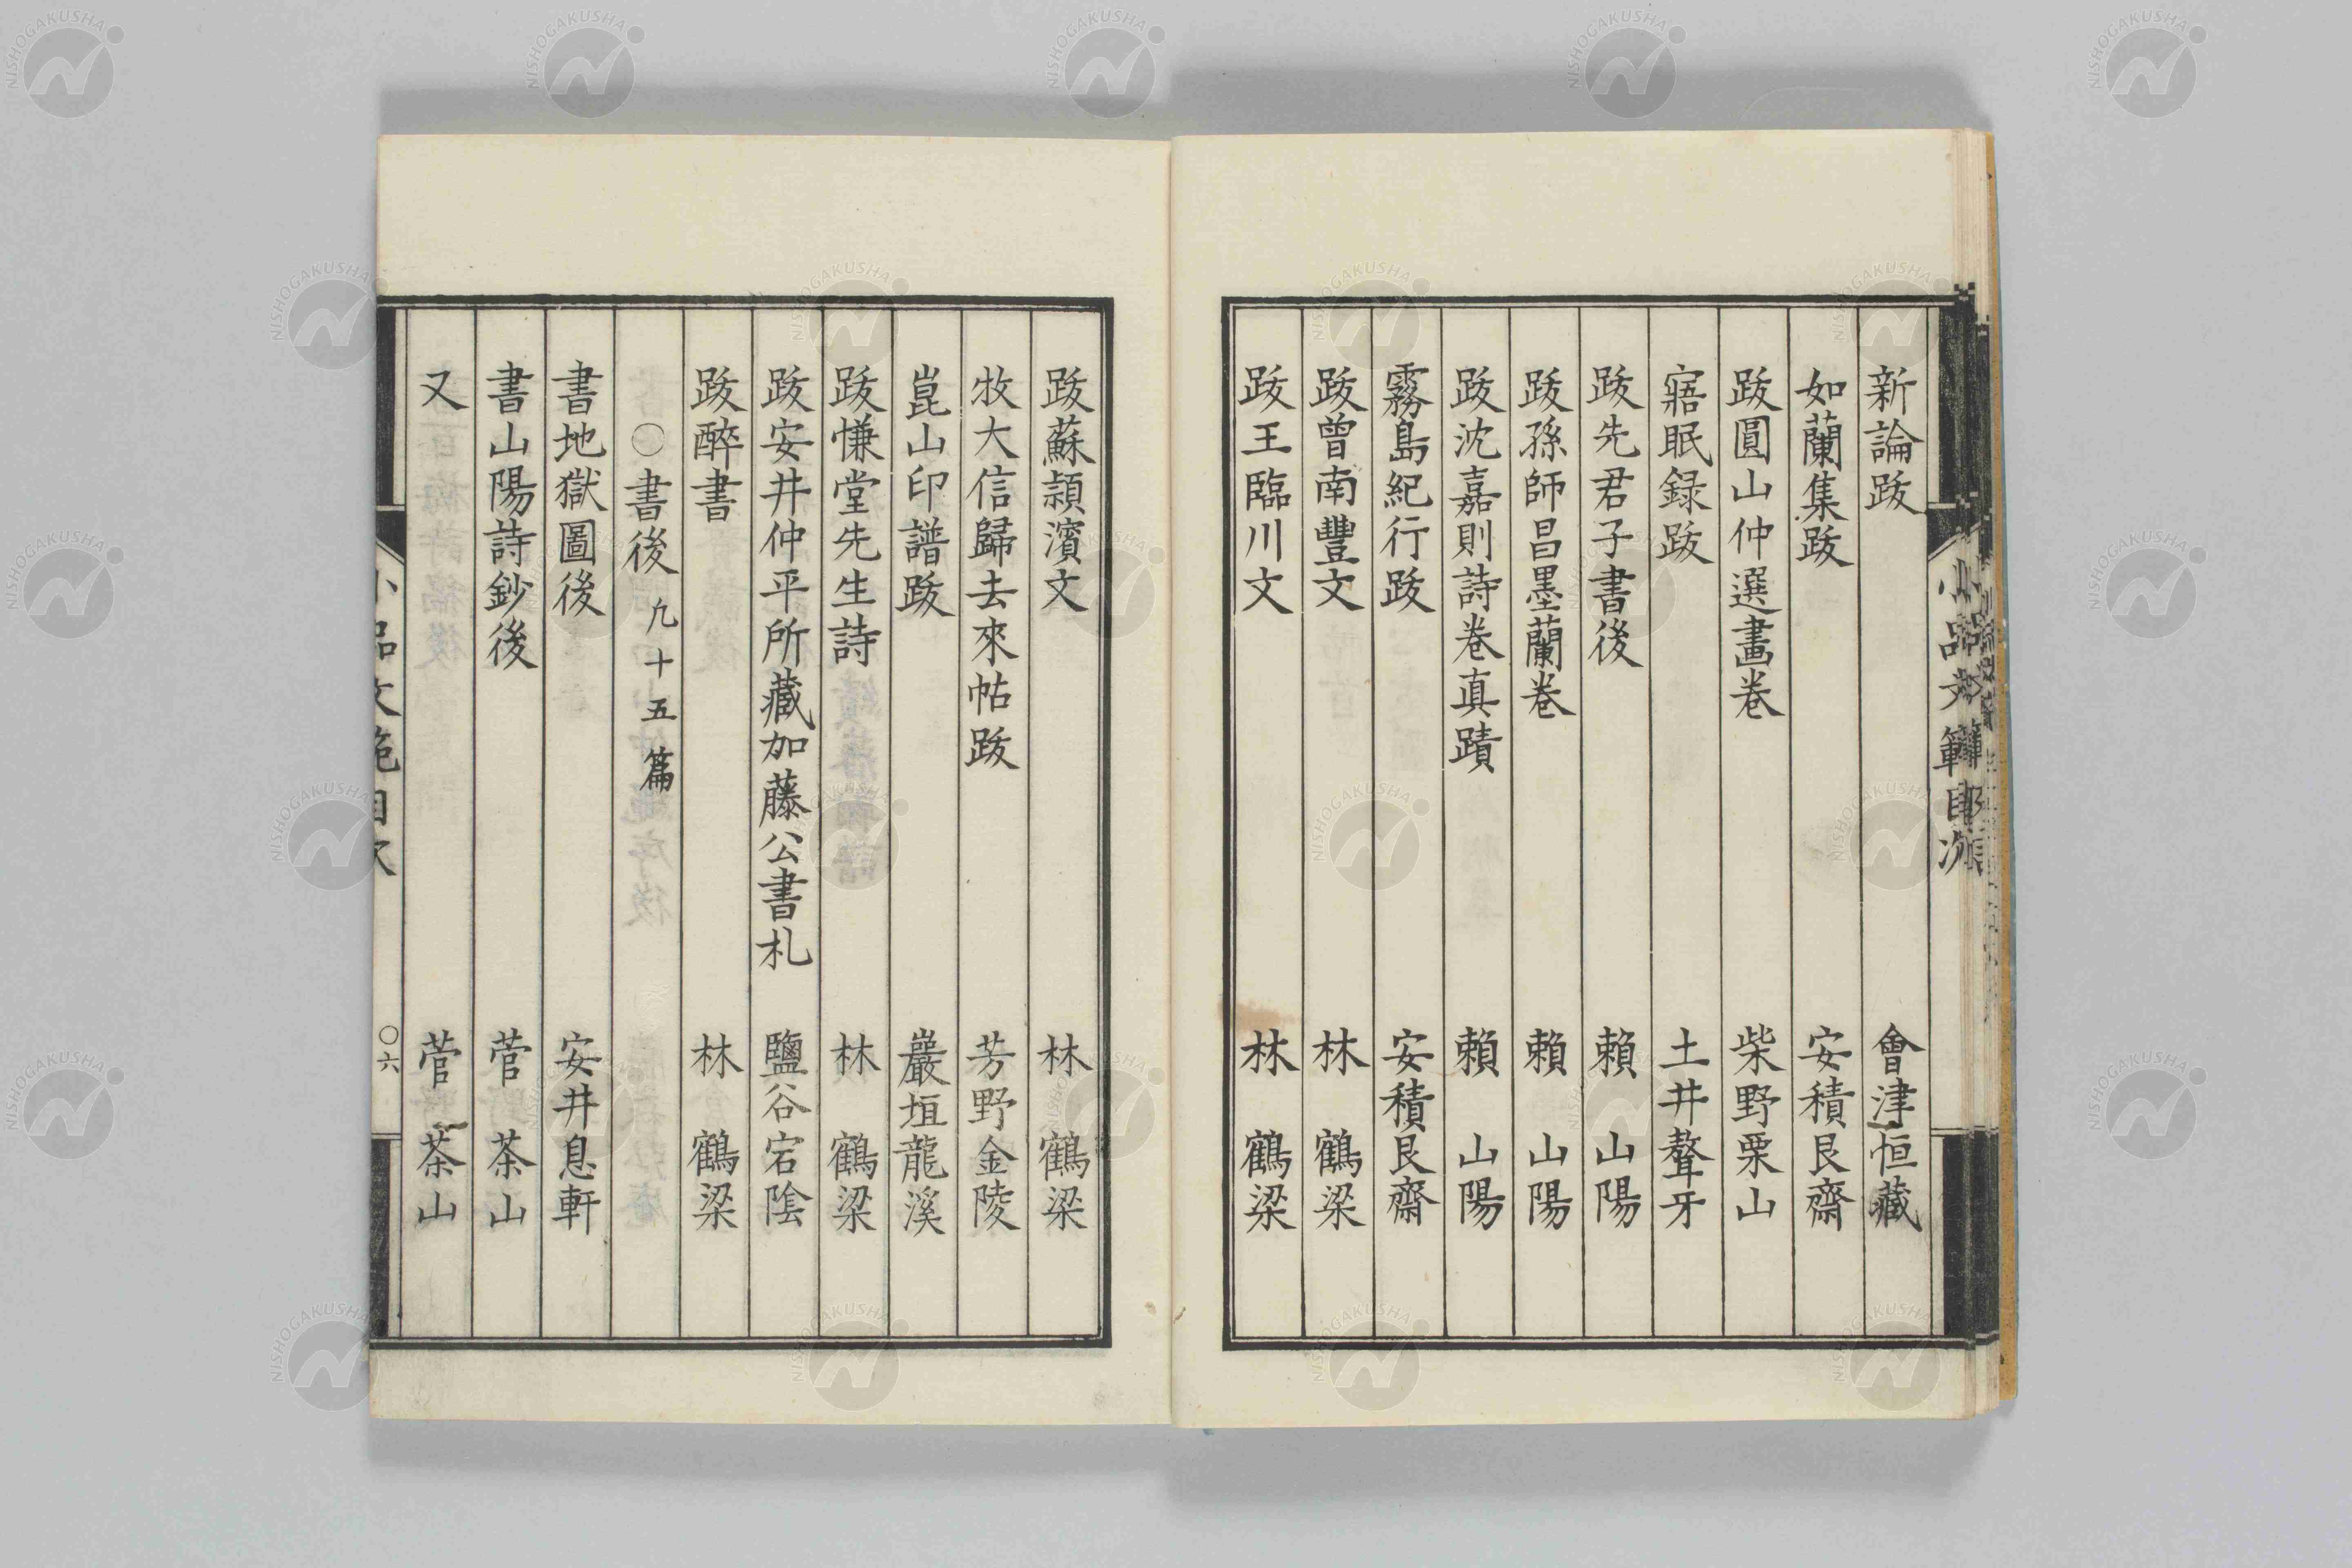 新論跋 會津恒藏
如蘭集跋 安積艮齋
跋圓山仲選畫卷 柴野栗山
寤眠録跋 土井聱牙
跋先君子書後 賴山陽
跋孫師昌墨蘭卷 賴山陽
跋沈嘉則詩卷真蹟 賴山陽
霧島紀行跋 安積艮齋
跋曾南豐文 林鶴梁
跋王臨川文 林鶴梁
跋蘇潁濱文 林鶴梁
牧大信歸去來帖跋 芳野金陵
崑山印譜跋 巖垣龍溪
跋慊堂先生詩 林鶴梁
跋安井仲平所藏加藤公書札 鹽谷宕陰
跋醉書 林鶴梁
〇書後 九十五篇
書地獄圖後 安井息軒
書山陽詩鈔後 菅茶山
又 菅茶山
〇六
NISHOGAKUSHA